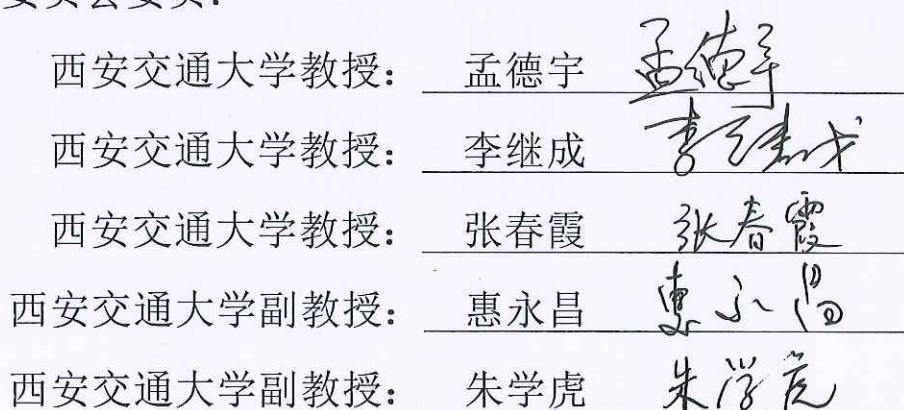 委员会委员：
西安交通大学教授： 孟德宇 孟德宇
西安交通大学教授： 李继成 李继成
西安交通大学教授： 张春霞 张春霞
西安交通大学副教授： 惠永昌 惠永昌
西安交通大学副教授： 朱学虎 朱学虎